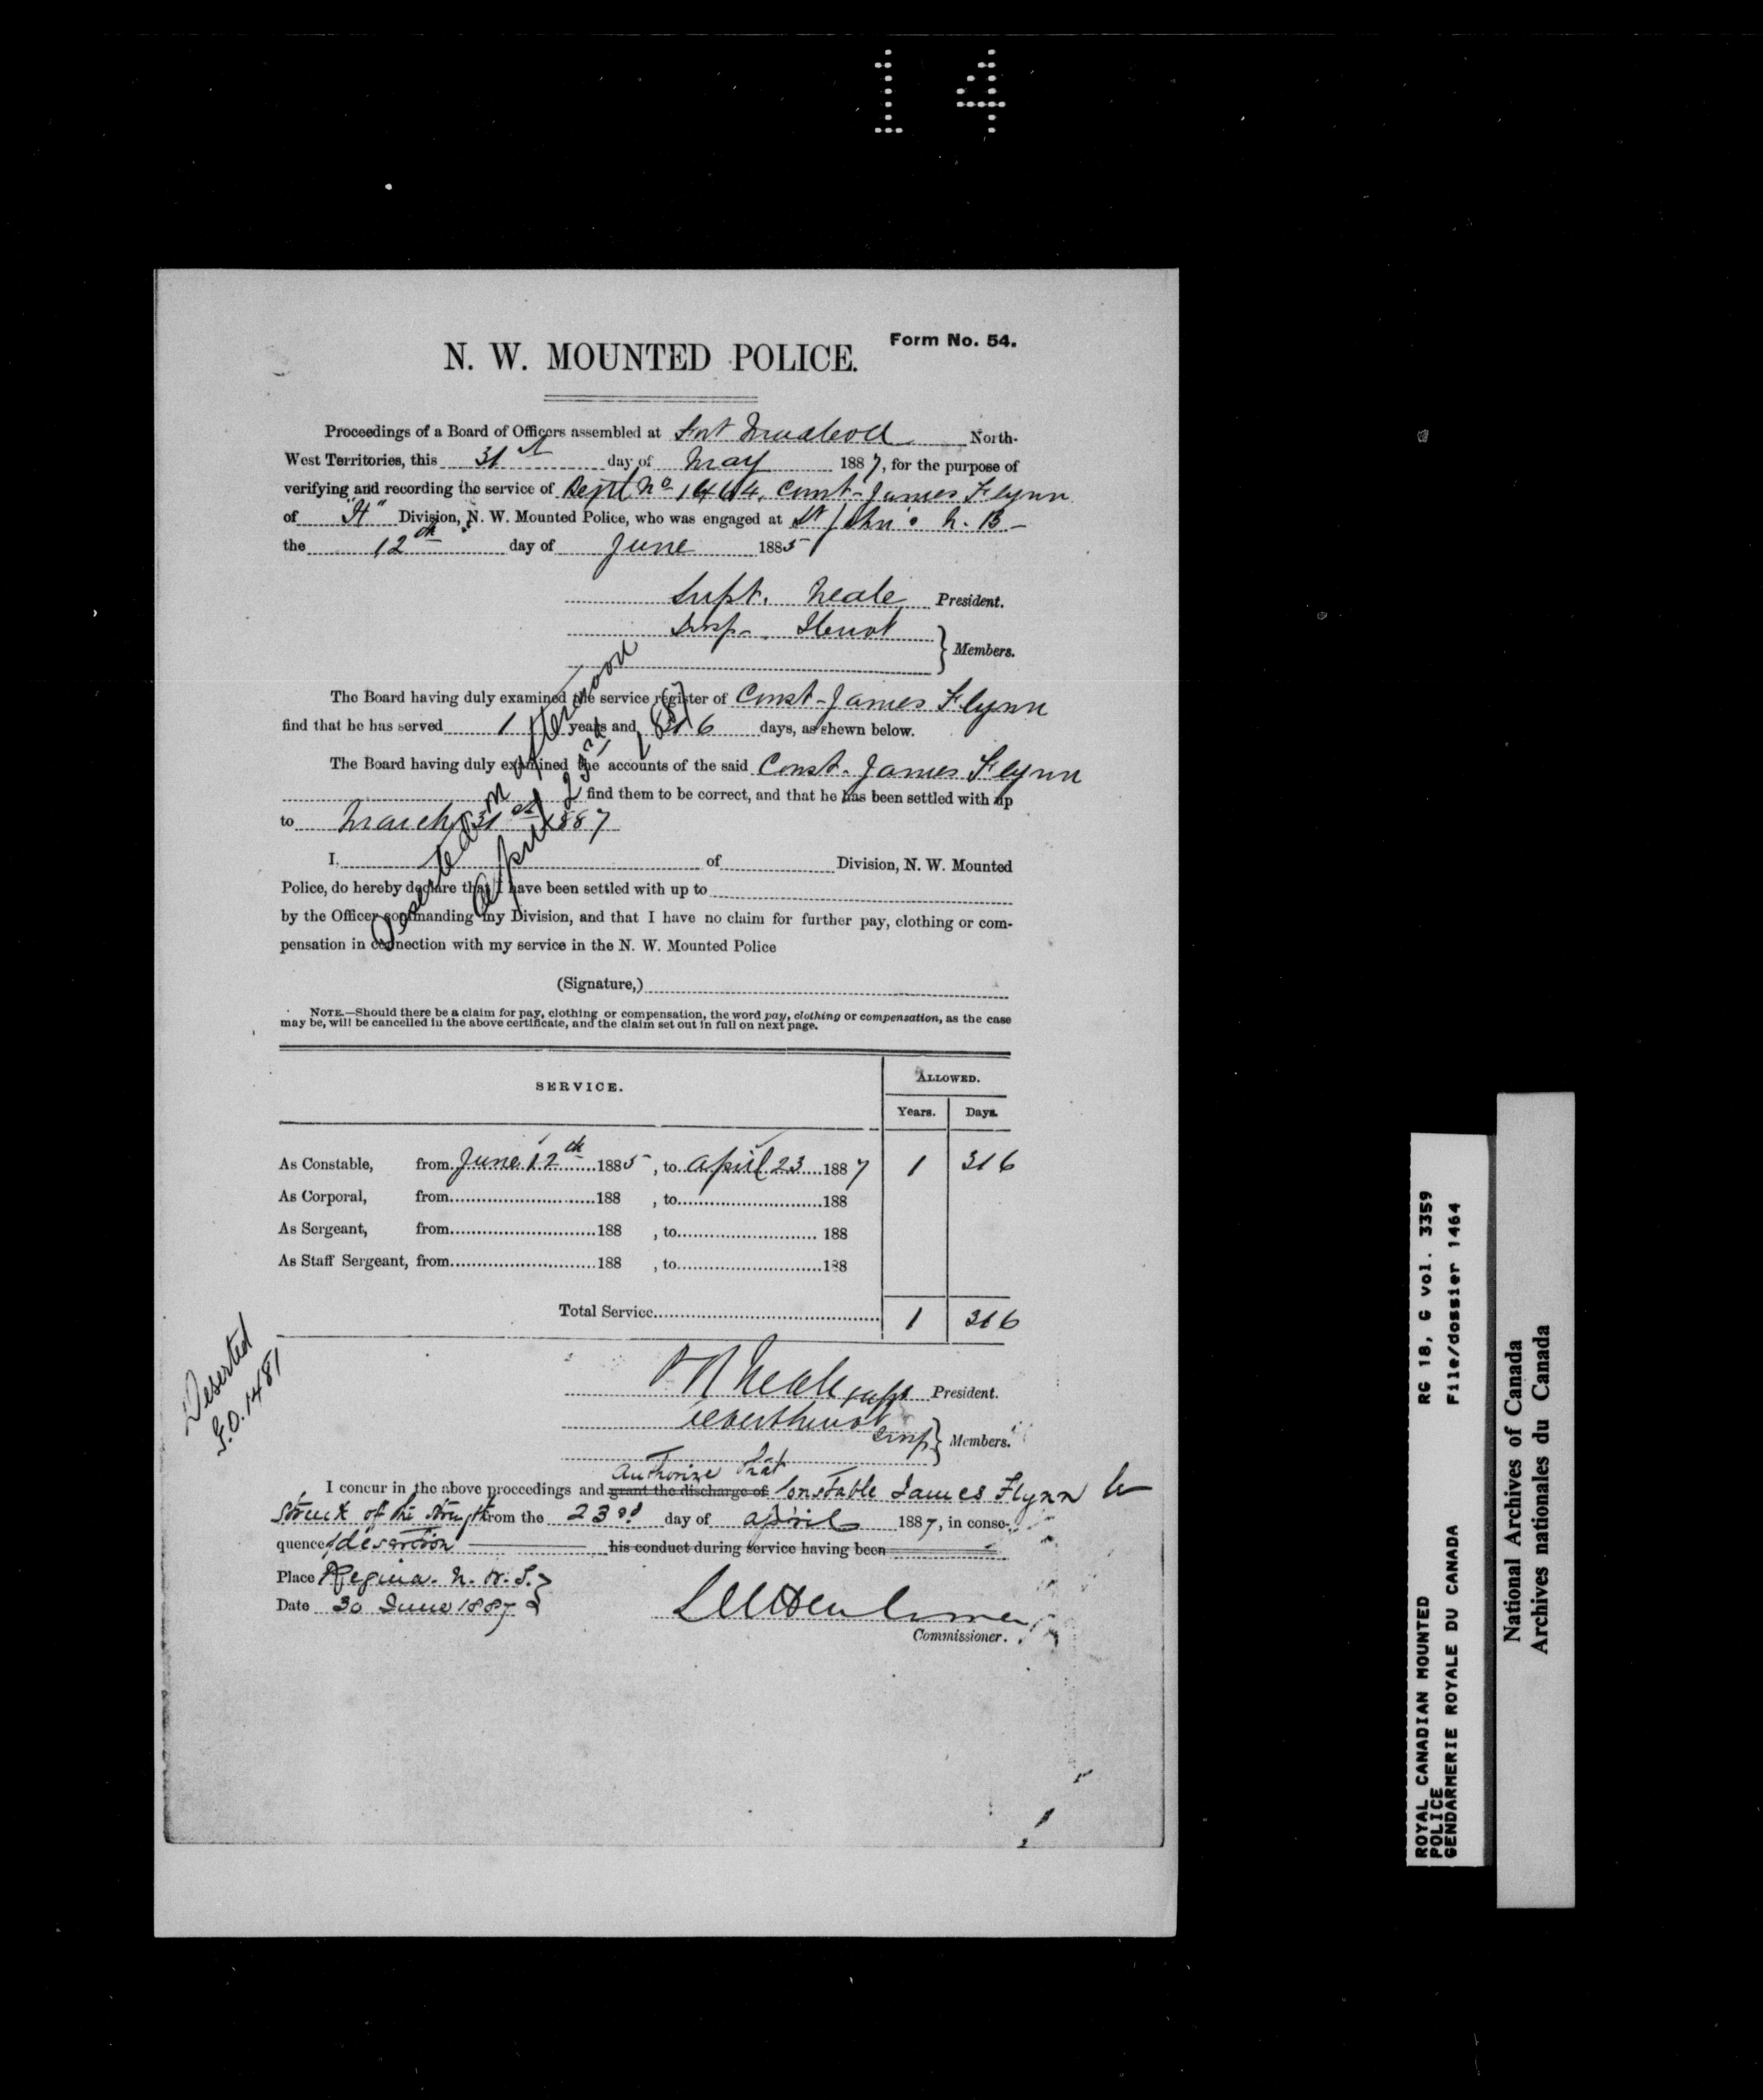 14
Form No. 54.
N. W. MOUNTED POLICE.
Proceedings of a Board of Officers assembled at Fort Macleod North-
West Territories, this 31st day of May 1887, for the purpose of
verifying and recording the service of Regtl. No 1464, Const. James Flynn
of "H" Division, N. W. Mounted Police, who was engaged at St John's N. B-
the 12th day of June 1885
Supt. Neale President.
Insp.
Members.
The Board having duly examined the service register of Const. James Flynn
find that he has served 1 years and 316 days, as shewn below.
The Board having duly examined the accounts of the said Const. James Flynn
find them to be correct, and that he has been settled with up
to March 31st 1887
Deserted on afternoon
April 23rd 1887
I. of Division, N. W. Mounted
Police, do hereby declare that I have been settled with up to
by the Officer commanding my Division, and that I have no claim for further pay, clothing or com-
pensation in connection with my service in the N. W. Mounted Police
(Signature,)
NOTE.—Should there be a claim for pay, clothing or compensation, the word pay, clothing or compensation, as the case
may be, will be cancelled in the above certificate, and the claim set out in full on next page.
SERVICE.
ALLOWED.
Years. Days.
As Constable, from June 12th 1885, to April 23 1887 1 316
As Corporal, from 188 , to 188
As Sergeant, from 188 , to 188
As Staff Sergeant, from 188 , to 188
Total Service 1 316
Deserted
G.O. 1481
Neale Supt President.
Insp Members.
authorize that
I concur in the above proceedings and grant the discharge of Constable James Flynn be
struck of the strength from the 23rd day of April 1887, in conse-
quence of desertion his conduct during service having been
Place Regina. N. W. T.
Date 30 June 1887
Commissioner.
ROYAL CANADIAN MOUNTED RG 18, G vol. 3359
POLICE File/dossier 1464
GENDARMERIE ROYALE DU CANADA
National Archives of Canada
Archives nationales du Canada